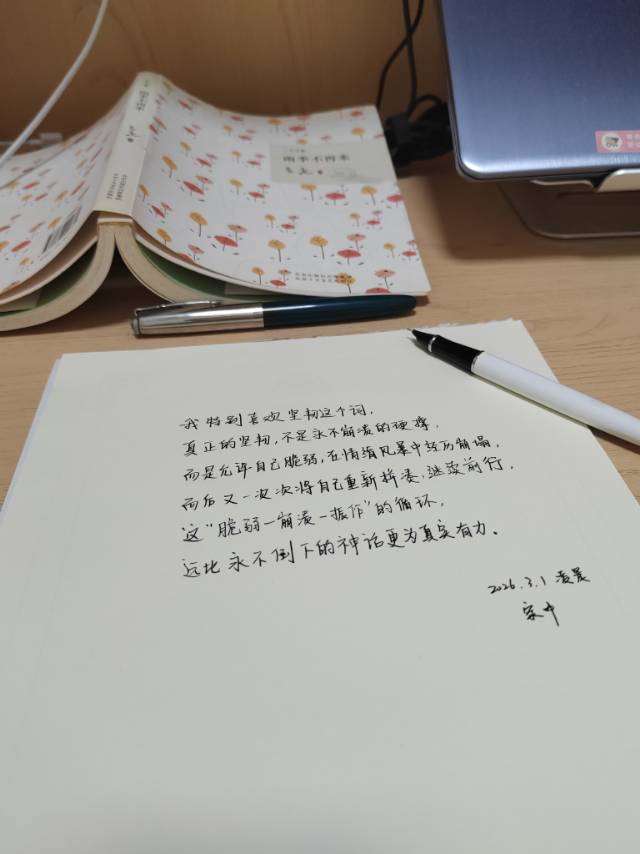 雨季不再来
三毛
我特别喜欢坚韧这个词，
真正的坚韧，不是永不崩溃的硬撑，
而是允许自己脆弱，在情绪风暴中经历崩塌，
而后又一次次将自己重新拼凑、继续前行，
这“脆弱—崩溃—振作”的循环，
远比永不倒下的神话更为真实有力。
2026.3.1 凌晨
家中